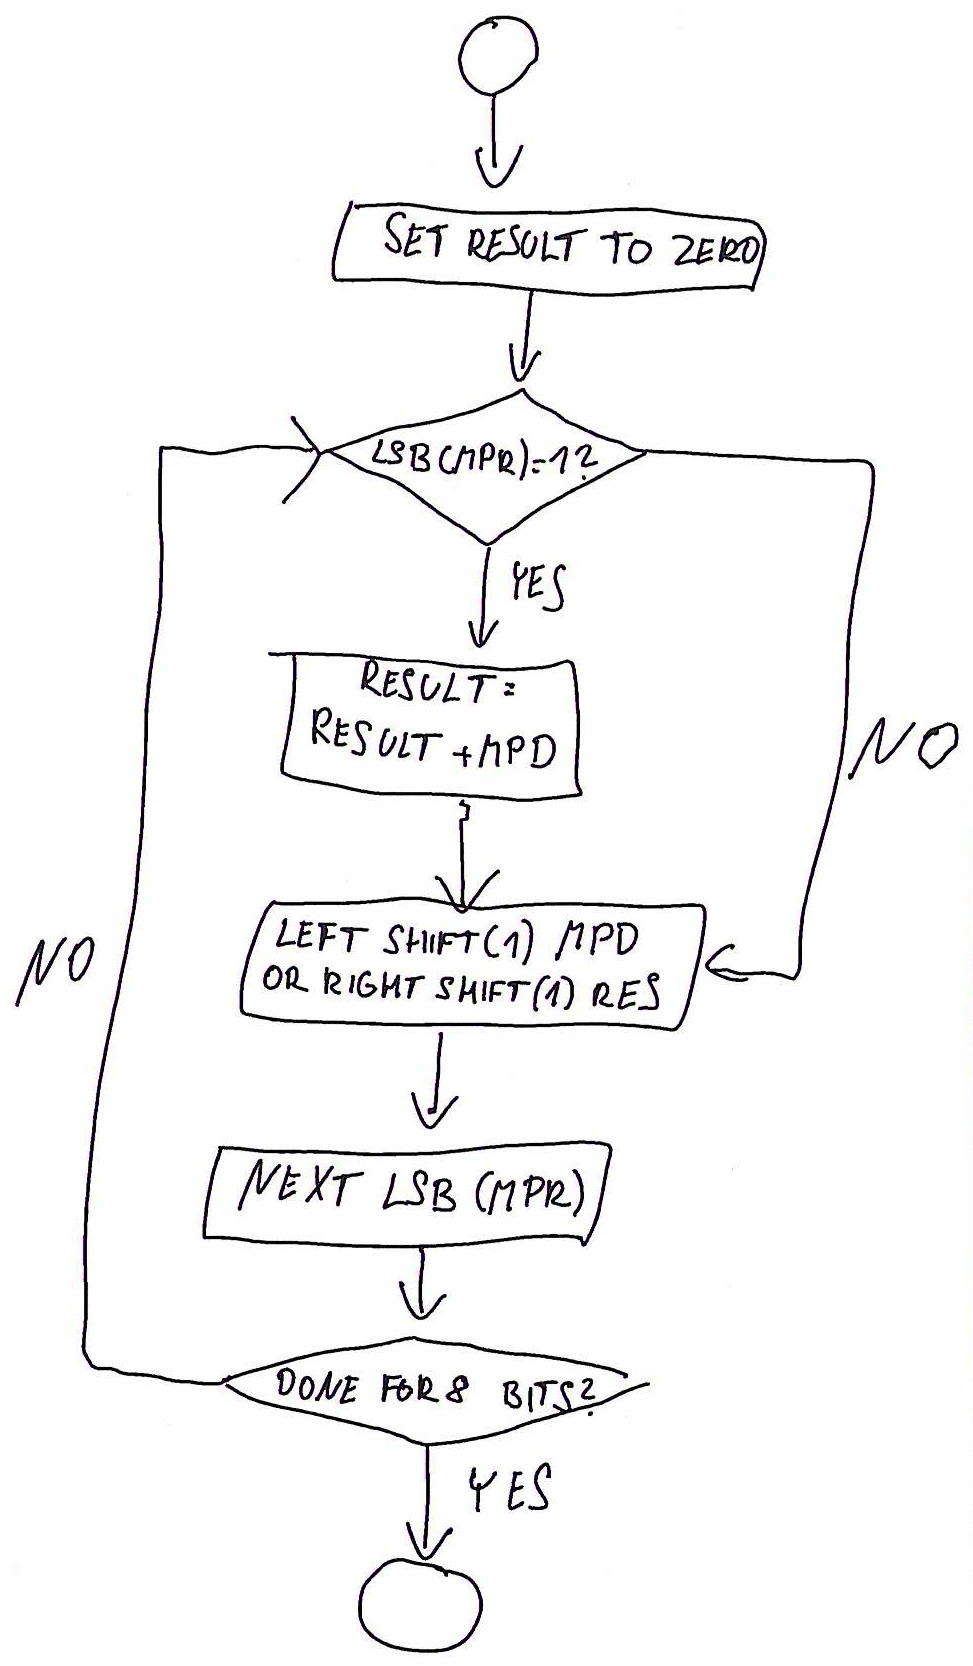 SET RESULT TO ZERO
LSB(MPR)=1?
YES
RESULT=
RESULT +MPD
NO
LEFT SHIFT(1) MPD
OR RIGHT SHIFT(1) RES
NO
NEXT LSB (MPR)
DONE FOR 8 BITS?
YES